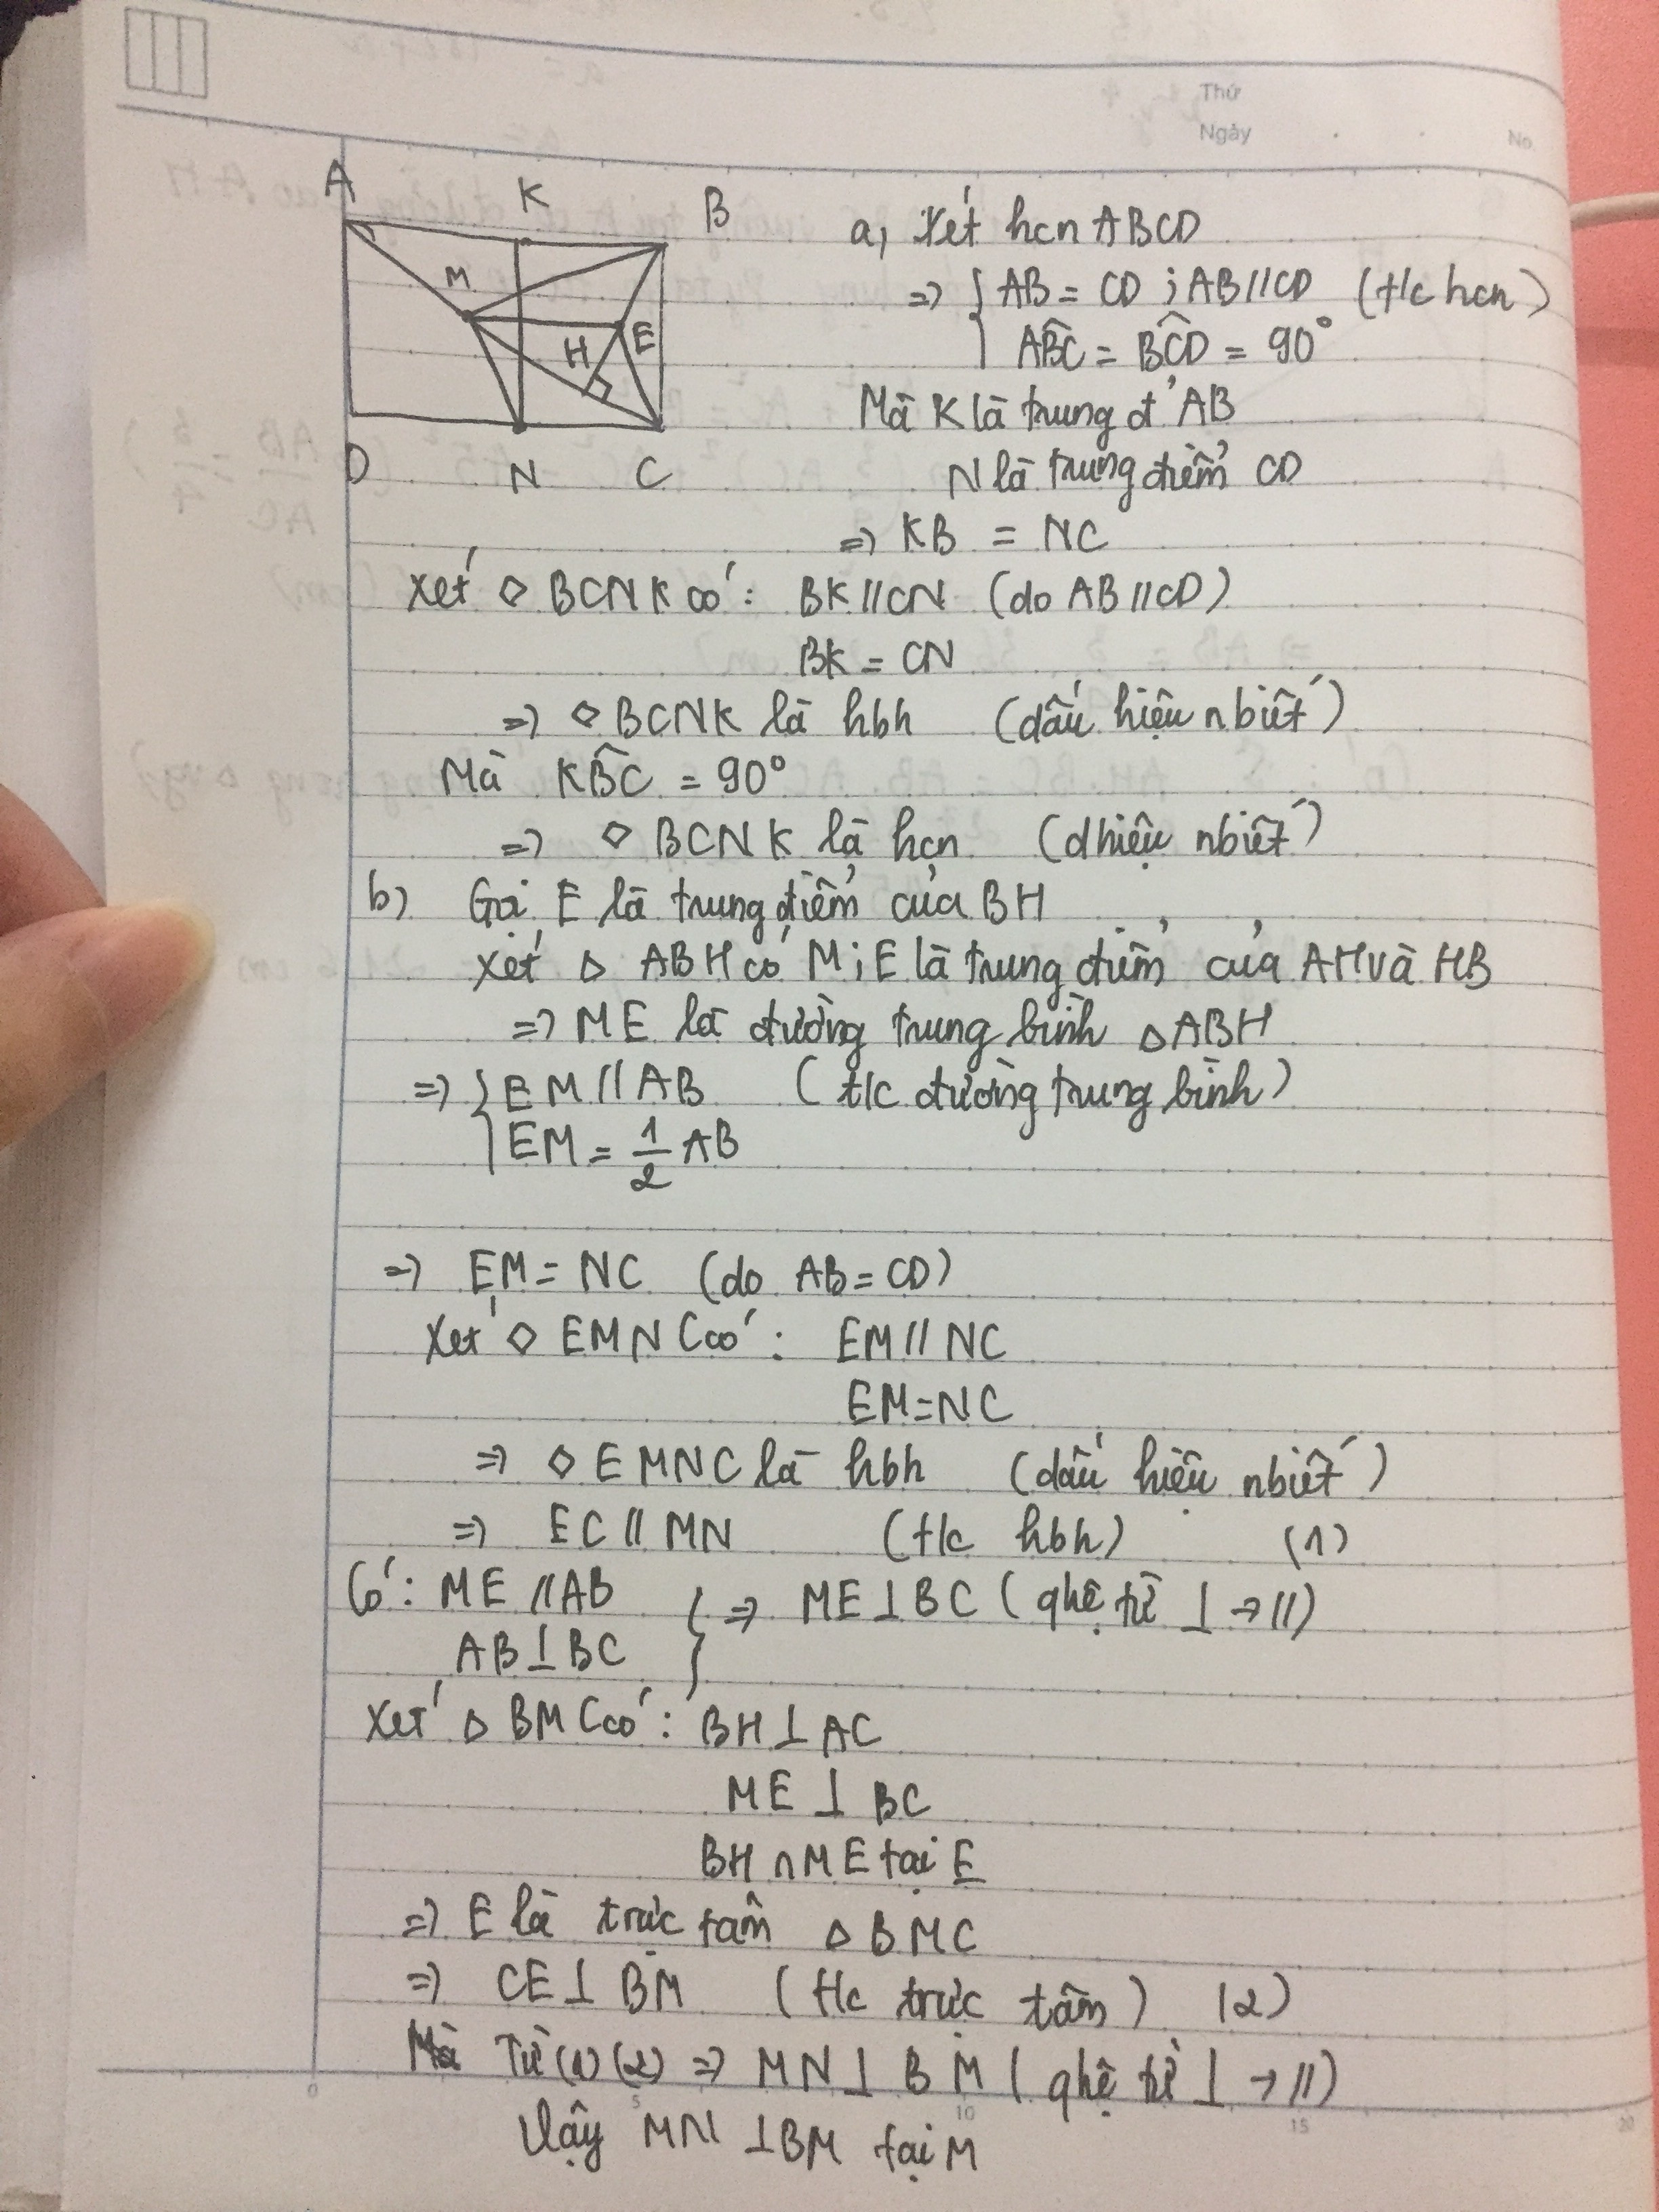 Thứ
Ngày
No
A K B
M
H E
D N C
a, Xét hcn ABCD
=> { AB = CD ; AB//CD (t/c hcn)
ABC = BCD = 90°
Mà K là trung đ' AB
N là trung điểm CD
=> KB = NC
Xét ◇ BCNK có: BK//CN (do AB//CD)
BK = CN
=> ◇ BCNK là hbh (dấu hiệu nbiết)
Mà KBC = 90°
=> ◇ BCNK là hcn (dhiệu nbiết)
b) Gọi E là trung điểm của BH
Xét Δ ABH có M; E là trung điểm của AH và HB
=> ME là đường trung bình Δ ABH
=> { EM // AB (t/c đường trung bình)
EM = 1/2 AB
=> EM = NC (do AB = CD)
Xét ◇ EMNC có: EM // NC
EM = NC
=> ◇ EMNC là hbh (dấu hiệu nbiết)
=> EC // MN (t/c hbh) (1)
Có: ME // AB } => ME ⊥ BC (qhệ từ ⊥ → //)
AB ⊥ BC
Xét Δ BMC có: BH ⊥ AC
ME ⊥ BC
BH ∩ ME tại E
=> E là trực tâm Δ BMC
=> CE ⊥ BM (t/c trực tâm) (2)
Từ (1) (2) => MN ⊥ BM (qhệ từ ⊥ → //)
Vậy MN ⊥ BM tại M
0 5 10 15 20